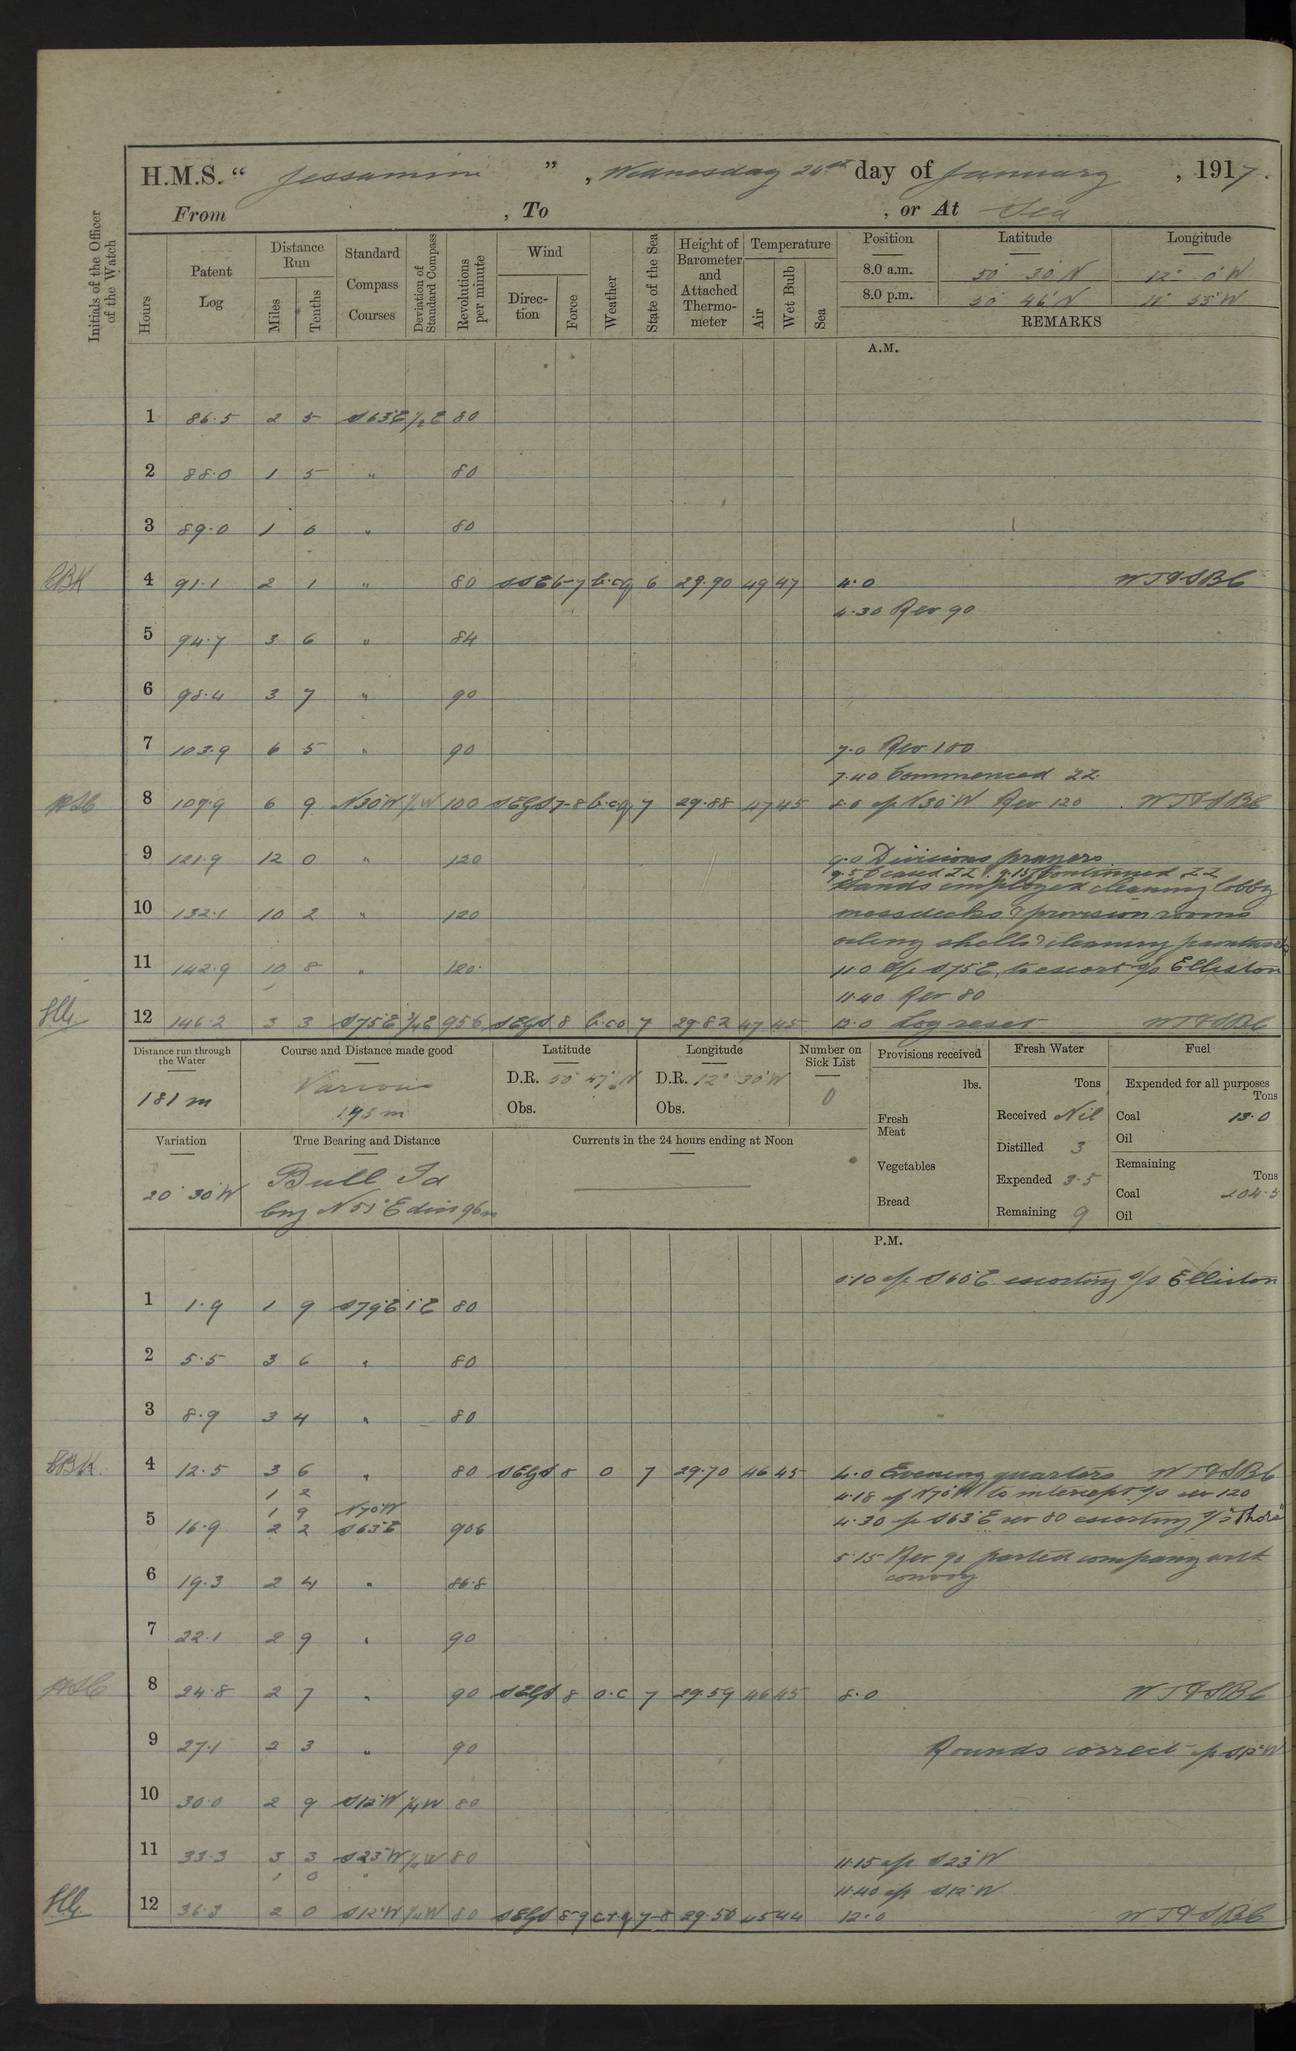 H.M.S. “ Jessamine ” , Wednesday 24th day of January , 1917 .
From , To , or At Sea
Initials of the Officer of the Watch
Hours Patent Log Distance Run Miles Tenths Standard Compass Courses Deviation of Standard Compass Revolutions per minute Wind Direction Force Weather State of the Sea Height of Barometer and Attached Thermometer Temperature Air Wet Bulb Sea
Position Latitude Longitude
8.0 a.m. 50° 30' N 12° 0' W
8.0 p.m. 50° 46' N 11° 55' W
REMARKS
A.M.
1 86.5 2 5 S63°E ½E 80
2 88.0 1 5 " 80
3 89.0 1 0 " 80
CBK 4 91.1 2 1 " 80 SSE 6-7 b.cq 6 29.90 49 47 4.0 WT&SBC
4.30 Rev 90
5 94.7 3 6 " 84
6 98.4 3 7 " 90
7 103.9 6 5 " 90 7.0 Rev 100
7.40 Commenced ZZ
8 109.9 6 9 N30°W ½W 100 SEbyS 7-8 b.cq 7 29.88 47 45 8.0 a/c N30°W Rev 120 WT&SBC
9 121.9 12 0 " 120 9.0 Divisions prayers
9.5 Ceased ZZ. 9.15 Continued ZZ
Hands employed cleaning lobby
10 132.1 10 2 " 120 messdecks & provision rooms
oiling shells & cleaning paintwork
11 142.9 10 8 " 120 11.0 A/c S75°E, to escort s/s Elliston
11.40 Rev 80
12 146.2 3 3 S75°E ¾E 95.6 SEbyS 8 b.co 7 29.82 47 45 12.0 Log reset WT&SBC
Distance run through the Water 181 m
Course and Distance made good Various 193 m
Latitude D.R. 50° 47' N Obs.
Longitude D.R. 12° 30' W Obs.
Number on Sick List 0
Provisions received lbs. Fresh Meat Vegetables Bread
Fresh Water Tons Received Nil Distilled 3 Expended 3.5 Remaining 9
Fuel Expended for all purposes Tons Coal 13.0 Oil Remaining Tons Coal 204.5 Oil
Variation 20° 30' W
True Bearing and Distance Bull Id
brg N51°E dist 96m
Currents in the 24 hours ending at Noon
P.M.
0.10 a/c S60°E escorting s/s Elliston
1 1.9 1 9 S79°E 1°E 80
2 5.5 3 6 " 80
3 8.9 3 4 " 80
CBK. 4 12.5 3 6 " 80 SEbyS 8 0 7 29.70 46 45 4.0 Evening quarters WT&SBC
1 2
4.18 a/c N70°W to intercept s/s rev 120
1 9 N70°W
5 16.9 2 2 S63°E 90.6 4.30 a/c S63°E rev 80 escorting s/s "Thore"
5.15 Rev 90 parted company with
6 19.3 2 4 " 86.8 convoy
7 22.1 2 9 " 90
8 24.8 2 7 " 90 SEbyS 8 o.c 7 29.59 46 45 8.0 WT&SBC
9 27.1 2 3 " 90 Rounds correct a/c S12°W
10 30.0 2 9 S12°W ¼W 80
11 33.3 3 3 S23°W ½W 80 11.15 a/c S23°W
1 0 "
11.40 a/c S12°W
12 36.3 2 0 S12°W ¼W 80 SEbyS 8-9 7-8 29.50 45 44 12.0 WT&SBC